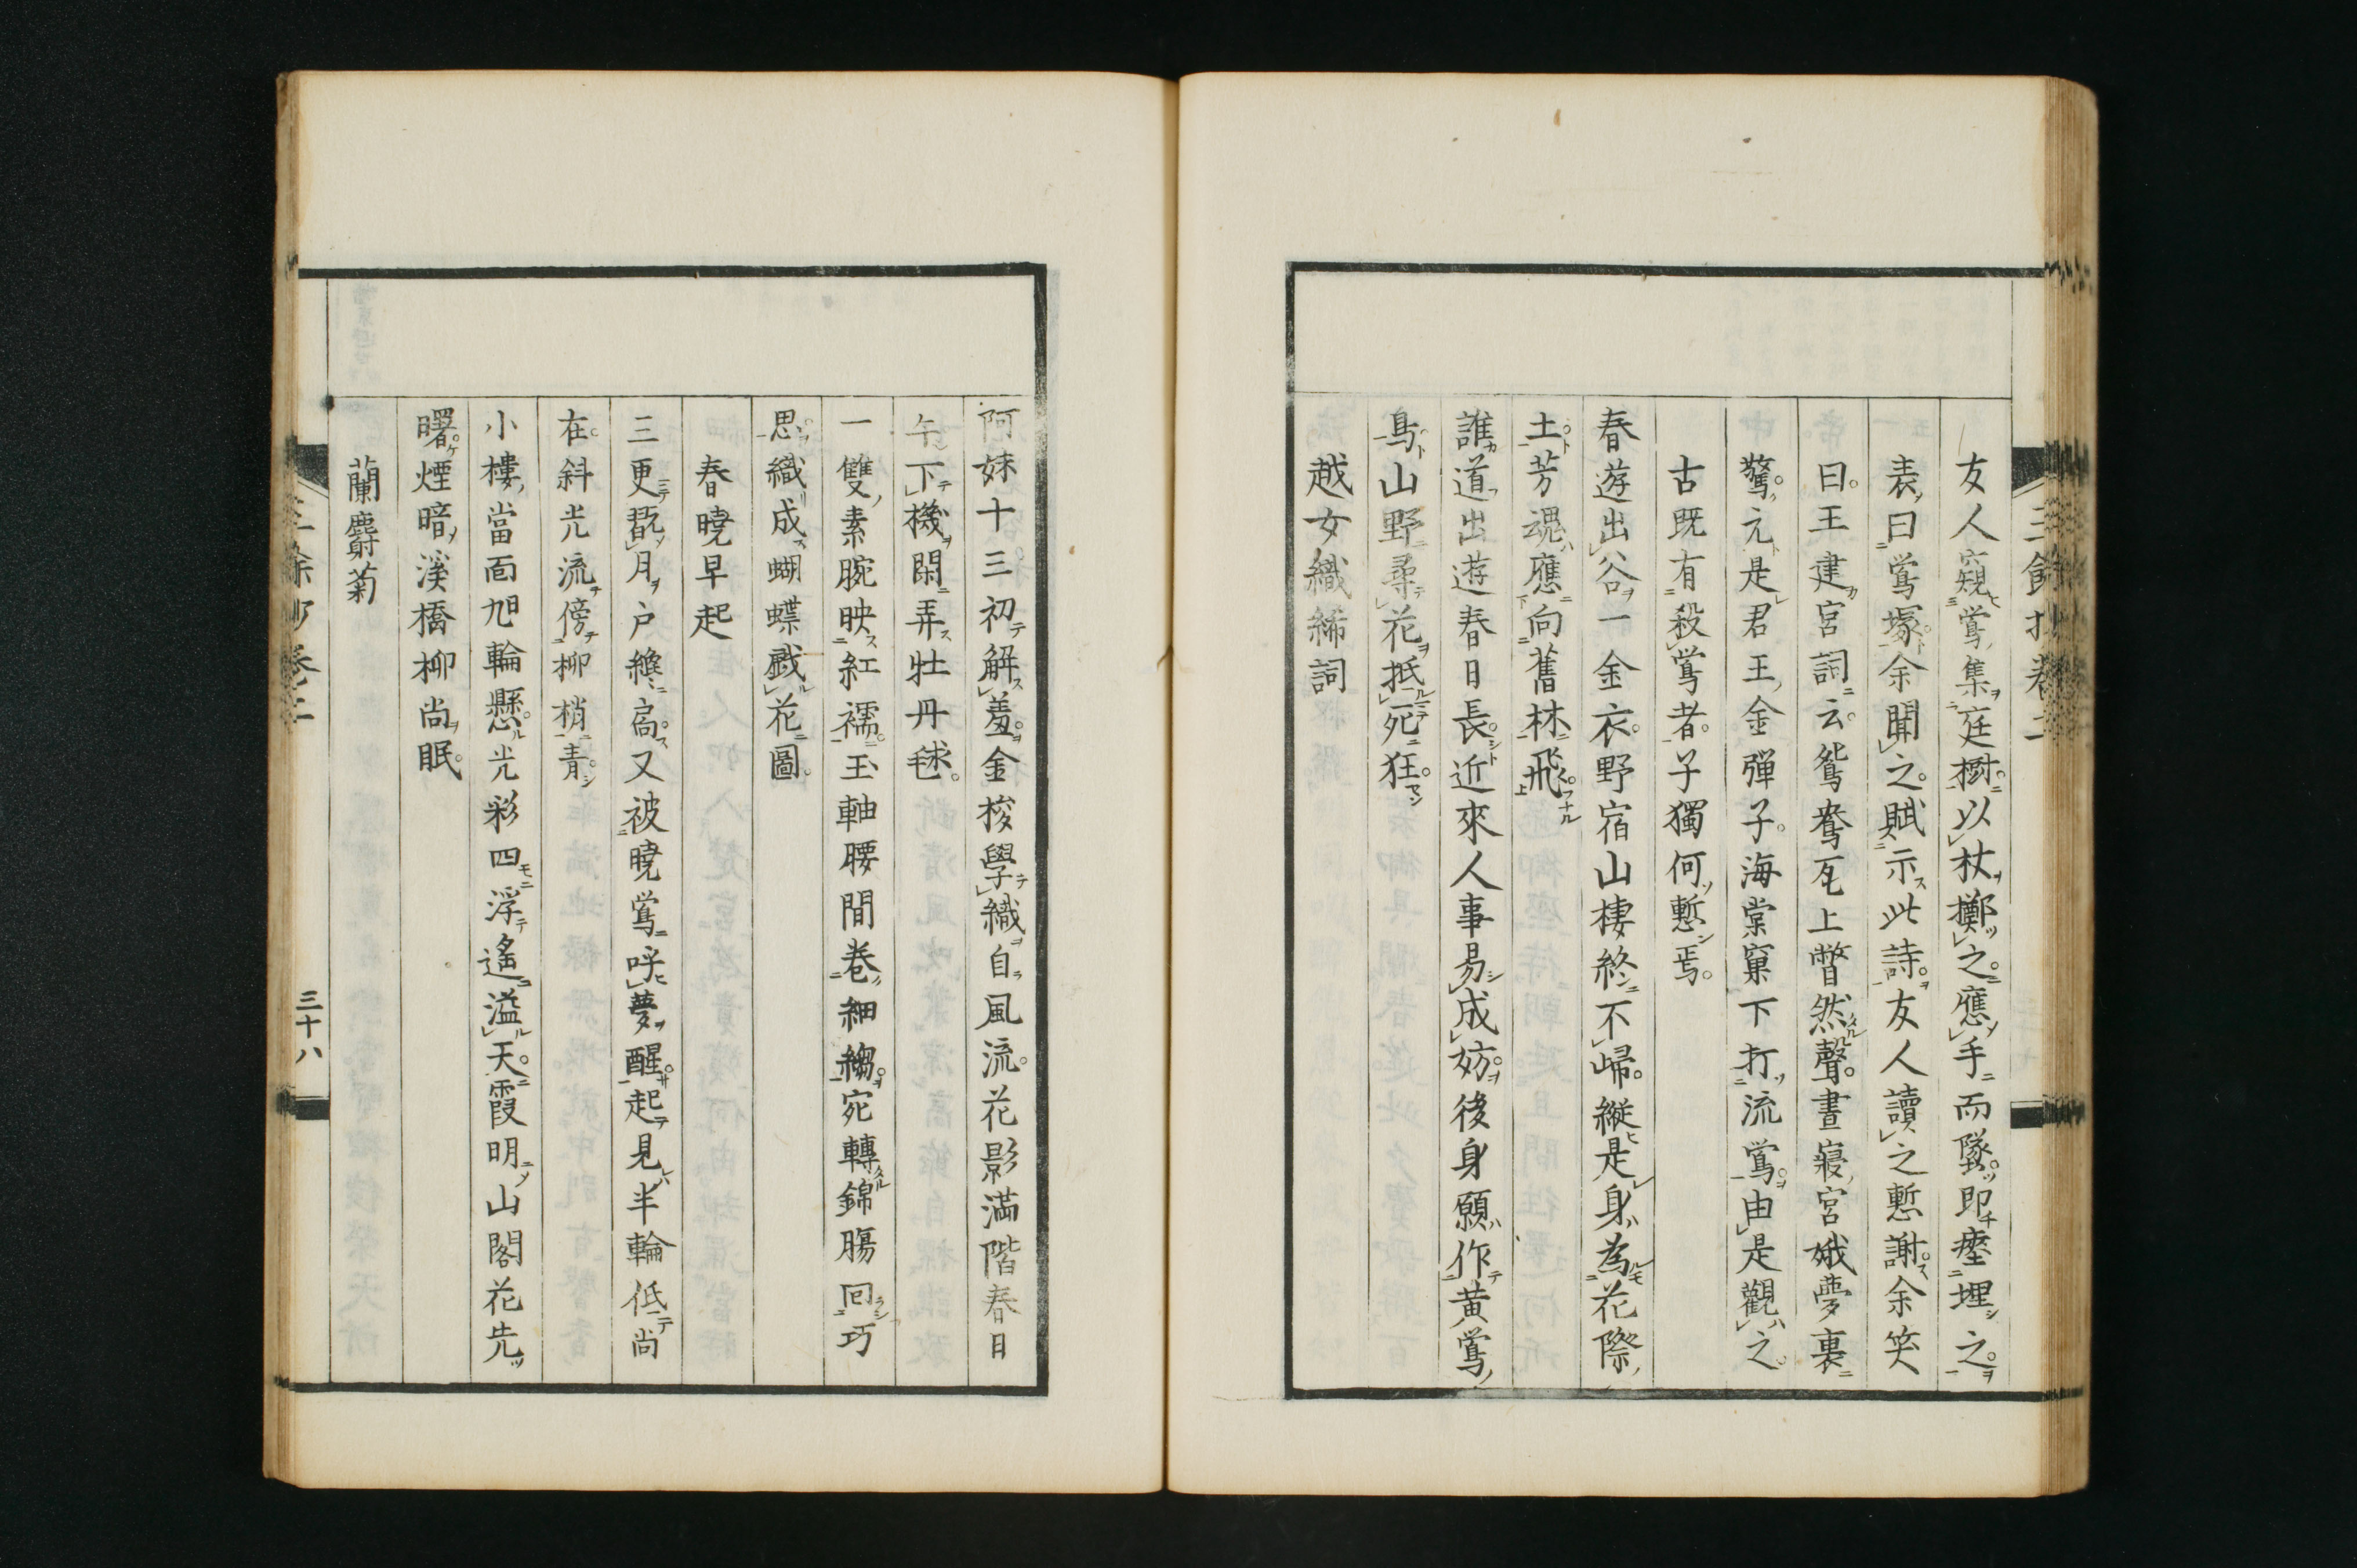 友人窺鶯集庭樹以杖擲之應手而墜即瘞埋之
表曰鶯塚余聞之賦示此詩友人讀之慙謝余笑
曰王建宮詞云鴛鴦瓦上瞥然聲晝寢宮娥夢裏
驚元是君王金彈子海棠窠下打流鶯由是觀之
古既有殺鶯者子獨何慙焉
春遊出谷一金衣野宿山棲終不歸縱是身為花際
土芳魂應向舊林飛
誰道出遊春日長近來人事易成妨後身願作黃鶯
鳥山野尋花抵死狂
越女織絺詞
阿妹十三初解羞金梭學織自風流花影滿階春日
午下機閑弄牡丹毬
一雙素腕映紅襦玉軸腰間卷細縐宛轉錦腸回巧
思織成蝴蝶戲花圖
春曉早起
三更翫月戶纔扃又被曉鶯呼夢醒起見半輪低尚
在斜光流傍柳梢青
小樓當面旭輪懸光彩四浮遙溢天霞明山閣花先
曙煙暗溪橋柳尚眠
蘭麝菊
三餘抄卷二
三十八